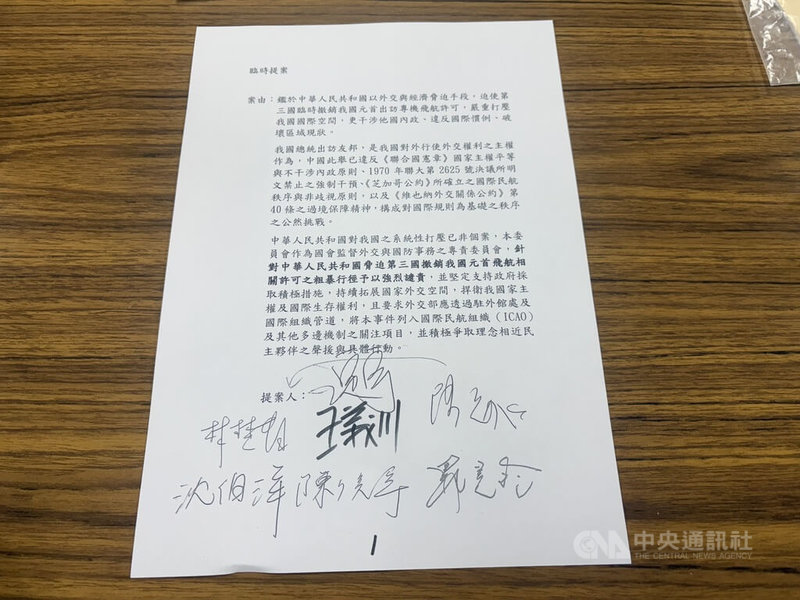 臨時提案
案由：鑑於中華人民共和國以外交與經濟脅迫手段，迫使第
三國臨時撤銷我國元首出訪專機飛航許可，嚴重打壓
我國國際空間，更干涉他國內政、違反國際慣例、破
壞區域現狀。
我國總統出訪友邦，是我國對外行使外交權利之主權
作為，中國此舉已違反《聯合國憲章》國家主權平等
與不干涉內政原則、1970 年聯大第 2625 號決議所明
文禁止之強制干預、《芝加哥公約》所確立之國際民航
秩序與非歧視原則，以及《維也納外交關係公約》第
40 條之過境保障精神，構成對國際規則為基礎之秩序
之公然挑戰。
中華人民共和國對我國之系統性打壓已非個案，本委
員會作為國會監督外交與國防事務之專責委員會，針
對中華人民共和國脅迫第三國撤銷我國元首飛航相
關許可之粗暴行徑予以強烈譴責，並堅定支持政府採
取積極措施，持續拓展國家外交空間，捍衛我國家主
權及國際生存權利，且要求外交部應透過駐外館處及
國際組織管道，將本事件列入國際民航組織（ICAO）
及其他多邊機制之關注項目，並積極爭取理念相近民
主夥伴之聲援與具體行動。
提案人：
林楚茵 王義川
沈伯洋 陳俊宇
1
CNA 中央通訊社
THE CENTRAL NEWS AGENCY